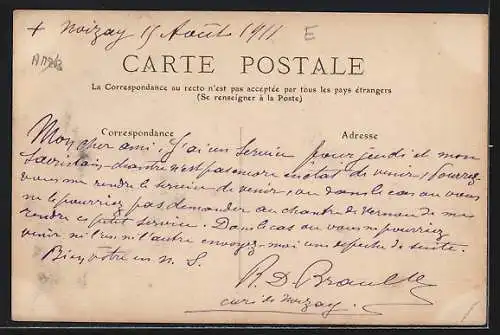 + Noizay 15 Août 1911 E
CARTE POSTALE
La Correspondance au recto n'est pas acceptée par tous les pays étrangers
(Se renseigner à la Poste)
Correspondance Adresse
Mon cher ami, j'ai un service pour jeudi et mon
Sacristain-chantre n'est pas encore en état de venir, Pourrez-
vous me rendre le service de venir, ou dans le cas où vous
ne le pourriez pas demander au chantre de Vernou de me
rendre ce petit service. Dans le cas où vous ne pourriez
venir ni l'un ni l'autre envoyez-moi une dépêche de suite.
Bien vôtre en N. S.
R. D. Brault
curé de Noizay.